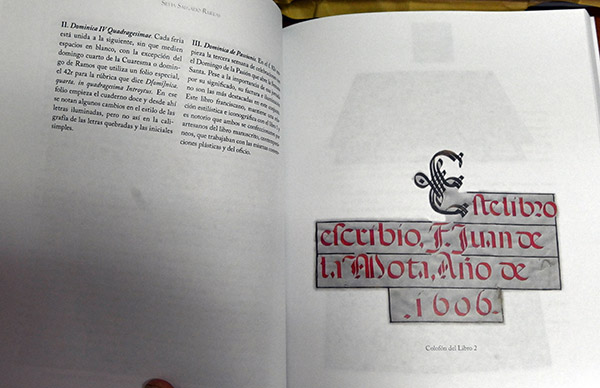 SILVIA SALGADO RUELAS
II. Dominica IV Quadragesimae. Cada feria
está unida a la siguiente, sin que medien
espacios en blanco, con la excepción del
domingo cuarto de la Cuaresma o domin-
go de Ramos que utiliza un folio especial,
el 42r para la rúbrica que dice D[omi]nica.
quarta. in quadragesima Introytus. En ese
folio empieza el cuaderno doce y desde ahí
se notan algunos cambios en el estilo de las
letras iluminadas, pero no así en la cali-
grafía de las letras quebradas y las iniciales
simples.
III. Dominica de Passionis. En el f.
pieza la tercera semana de
el Domingo de la Pasión que abre la
Santa. Pese a la importancia de este
por su significado, su factura e
no son las más destacadas en este
Este libro franciscano, mantiene una
ción estilística e iconográfica con el libro
es notorio que ambos se confeccionaron por
artesanos del libro manuscrito, contemporá-
neos, que trabajaban con las mismas
ciones plásticas y del oficio.
Este libro
escribio, F. Juan de
la Mota, Año de
.1606.
Colofón del Libro 2